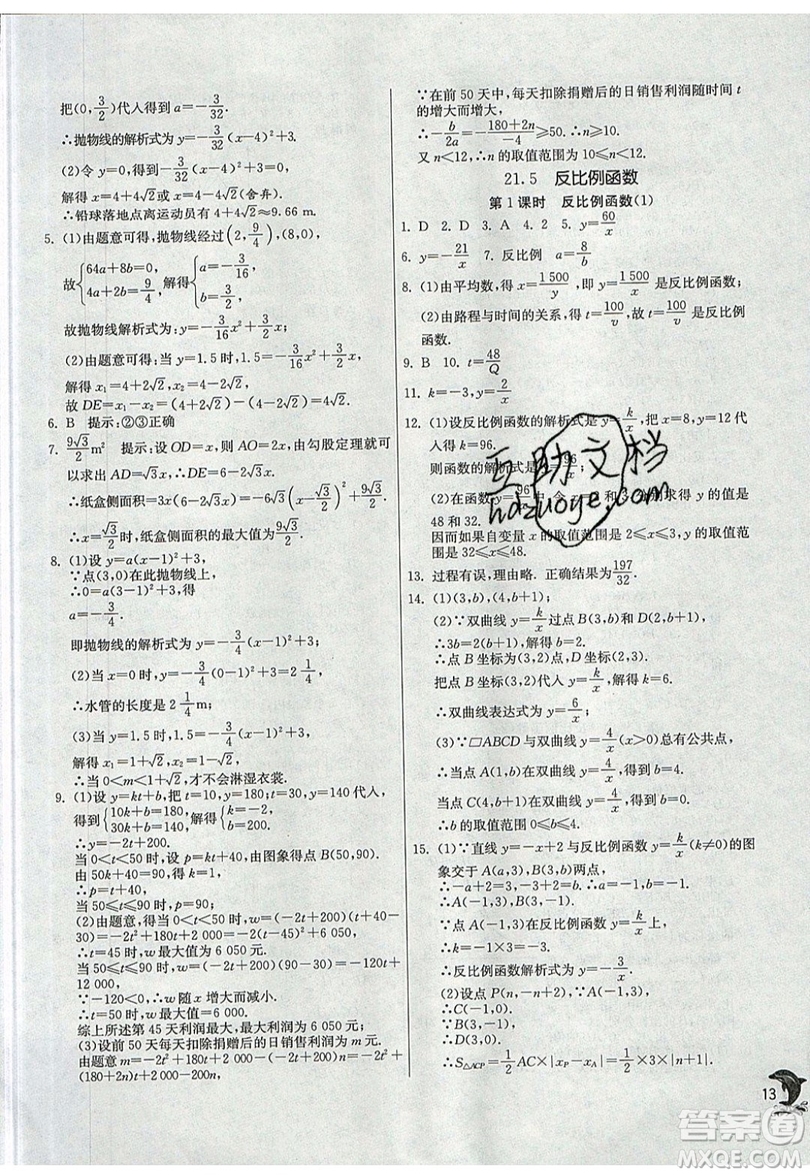 把(0,3/2)代人得到 a=-3/32.
∴抛物线的解析式为 y=-3/32(x-4)²+3.
(2)令 y=0,得到-3/32(x-4)²+3=0.
解得 x=4+4√2或 x=4-4√2(舍弃).
∴铅球落地点离运动员有 4+4√2≈9.66 m.
5. (1)由题意可得,抛物线经过(2,9/4),(8,0),
故{64a+8b=0, 4a+2b=9/4, 解得{a=-3/16, b=3/2,
故抛物线解析式为:y=-3/16x²+3/2x;
(2)由题意可得:当 y=1.5 时,1.5=-3/16x²+3/2x,
解得 x₁=4+2√2,x₂=4-2√2,
故 DE=x₁-x₂=4+2√2-(4-2√2)=4√2.
6. B 提示:②③正确
7. 9√3/2m² 提示:设 OD=x,则 AO=2x,由勾股定理就可
以求出 AD=√3x,∴DE=6-2√3x,
∴纸盒侧面积=3x(6-2√3x)=-6√3(x-√3/2)²+9√3/2,
∴x=√3/2时,纸盒侧面积的最大值为9√3/2.
8. (1)设 y=a(x-1)²+3,
∵点(3,0)在此抛物线上,
∴0=a(3-1)²+3,得
a=-3/4.
即抛物线的解析式为 y=-3/4(x-1)²+3;
(2)当 x=0 时,y=-3/4(0-1)²+3=2 1/4,
∴水管的长度是 2 1/4m;
(3)当 y=1.5 时,1.5=-3/4(x-1)²+3,
解得 x₁=1-√2,x₂=1+√2,
∴当 0<m<1+√2时,才不会淋湿衣裳.
9. (1)设 y=kt+b,把 t=10,y=180;t=30,y=140代人,
得到{10k+b=180, 30k+b=140,解得{k=-2, b=200.
∴y=-2t+200.
当 0<t≤50时,设 p=kt+40,由图象得点 B(50,90).
由 50k+40=90,得 k=1.
∴p=t+40,
当 50≤t≤90时,p=90;
(2)由题意,得当 0<t≤50时,w=(-2t+200)(t+40-30)=-2t²+180t+2000=-2(t-45)²+6 050,
∴t=45时,w最大值为 6 050元.
当 50≤t≤90时,w=(-2t+200)(90-30)=-120t+
12 000,
∵-120<0,∴w随 x 增大而减小.
∴t=50时,w最大值=6 000.
综上所述第 45 天利润最大,最大利润为 6 050 元.
(3)设前 50天每天扣除捐赠后的日销售利润为 m元.
由题意 m=-2t²+180t+2000-(-2t+200)n=-2t²+
(180+2n)t+2000-200n,
∵在前 50 天中,每天扣除捐赠后的日销售利润随时间 t
的增大而增大,
∴-b/2a=-180+2n/-4≥50.∴n≥10.
又 n<12,∴n 的取值范围为 10≤n<12.
21.5 反比例函数
第 1 课时 反比例函数(1)
1. D 2. D 3. A 4. 2 5. y=60/x
6. y=-21/x 7. 反比例 a=8/b
8. (1)由平均数,得 x=1 500/y,即 y=1 500/x是反比例函数;
(2)由路程与时间的关系,得 t=100/v,故 t=100/v是反比例
函数.
9. B 10. t=48/Q
11. k=-3,y=2/x
12. (1)设反比例函数的解析式是 y=k/x,把 x=8,y=12代
人得 k=96.
则函数的解析式是 y=96/x;
(2)在函数 y=96/x中,令 x=2和 3,分别求得 y 的值是
48 和 32.
因而如果自变量 x 的取值范围是 2≤x≤3,y 的取值
范围是 32≤y≤48.
13. 过程有误,理由略. 正确结果为197/32.
14. (1)(3,b),(4,b+1);
(2)∵双曲线 y=k/x过点 B(3,b)和 D(2,b+1),
∴3b=2(b+1),解得 b=2.
∴点 B 坐标为(3,2)点,D 坐标(2,3).
把点 B 坐标(3,2)代人 y=k/x,解得 k=6,
∴双曲线表达式为 y=6/x;
(3)∵□ABCD 与双曲线 y=4/x(x>0)总有公共点,
∴当点 A(1,b)在双曲线 y=4/x,得到 b=4,
当点 C(4,b+1)在双曲线 y=4/x,得到 b=0.
∴b 的取值范围 0≤b≤4.
15. (1)∵直线 y=-x+2 与反比例函数 y=k/x(k≠0)的图
象交于 A(a,3),B(3,b)两点,
∴-a+2=3,-3+2=b.
∴a=-1,b=-1.
∴A(-1,3),B(3,-1).
∵点 A(-1,3)在反比例函数 y=k/x上,
∴k=-1×3=-3.
∴反比例函数解析式为 y=-3/x.
(2)设点 P(n,-n+2),∵A(-1,3),
∴C(-1,0).
∵B(3,-1),
∴D(3,0).
∴S△ACP=1/2AC×|xP-xA|=1/2×3×|n+1|.
互助文档
hdzuoye.com
13
答案圈
MXQE.COM